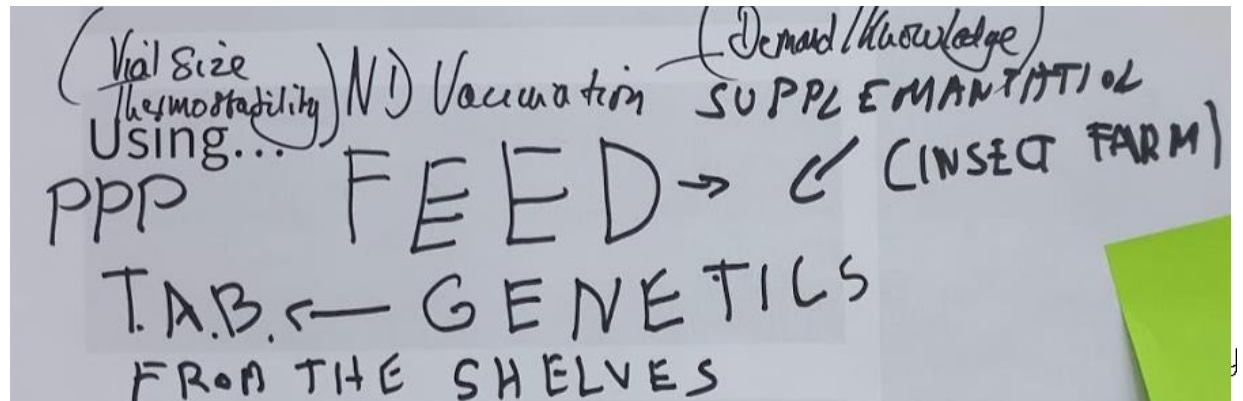 (Vial Size Thermostability) ND Vaccination — (Demand/Knowledge)
Using... SUPPLEMANTATIOL
PPP FEED → ✓ (INSECT FARM)
T.A.B. ← GENETICS
FROM THE SHELVES